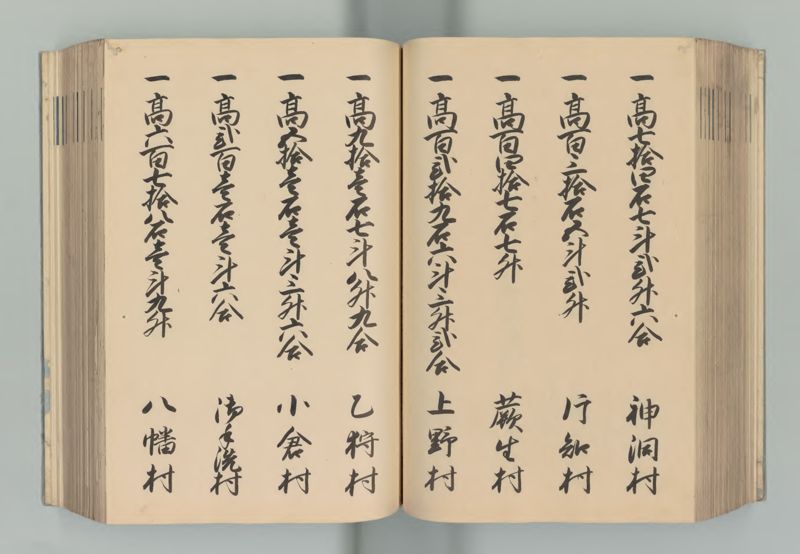 一高七拾四石七斗弐升六合 神洞村
一高百三拾石五斗弐升 片知村
一高百四拾七石七升 蕨生村
一高百弐拾九石六斗三升弐合 上野村
一高九拾壱石七斗八升九合 乙狩村
一高五拾壱石壱斗三升六合 小倉村
一高弐百壱石壱斗六合 御手洗村
一高六百七拾八石壱斗九升 八幡村